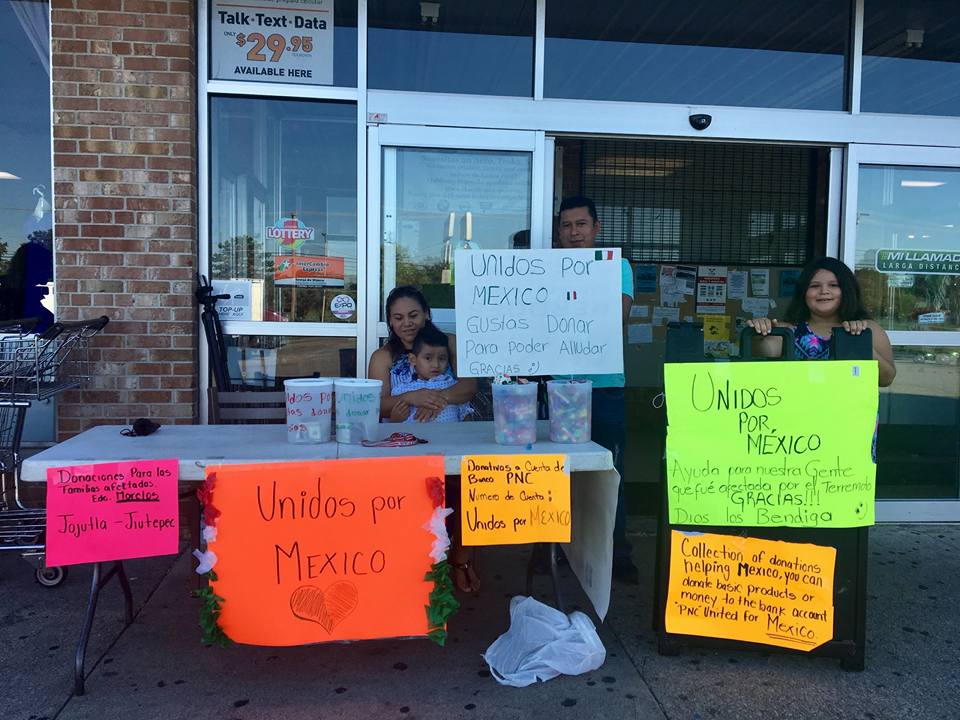 prepaid celular
Talk·Text·Data
ONLY $29.95
AVAILABLE HERE
LOTTERY
InterCambio Express
TOP-UP
expa
MI LLAMADA
LARGA DISTANC
UNIDOS POR
MEXICO
GUSTAS DONAR
PARA PODER ALLUDAR
GRACIAS
UNIDOS
POR,
MÉXICO
Ayuda para nuestra Gente
que fué afectada por el Terremoto
GRACIAS!!!
Dios los Bendiga
Collection of donations
helping Mexico, you can
donate basic products or
money to the bank account
"PNC" United for Mexico.
Donaciones Para las
Familias afectadas.
Edo. Morelos
Jojutla - Jiutepec
Unidos por
Mexico
Donativos a Cuenta de
Banco PNC
Numero de Cuenta:
Unidos por MEXICO